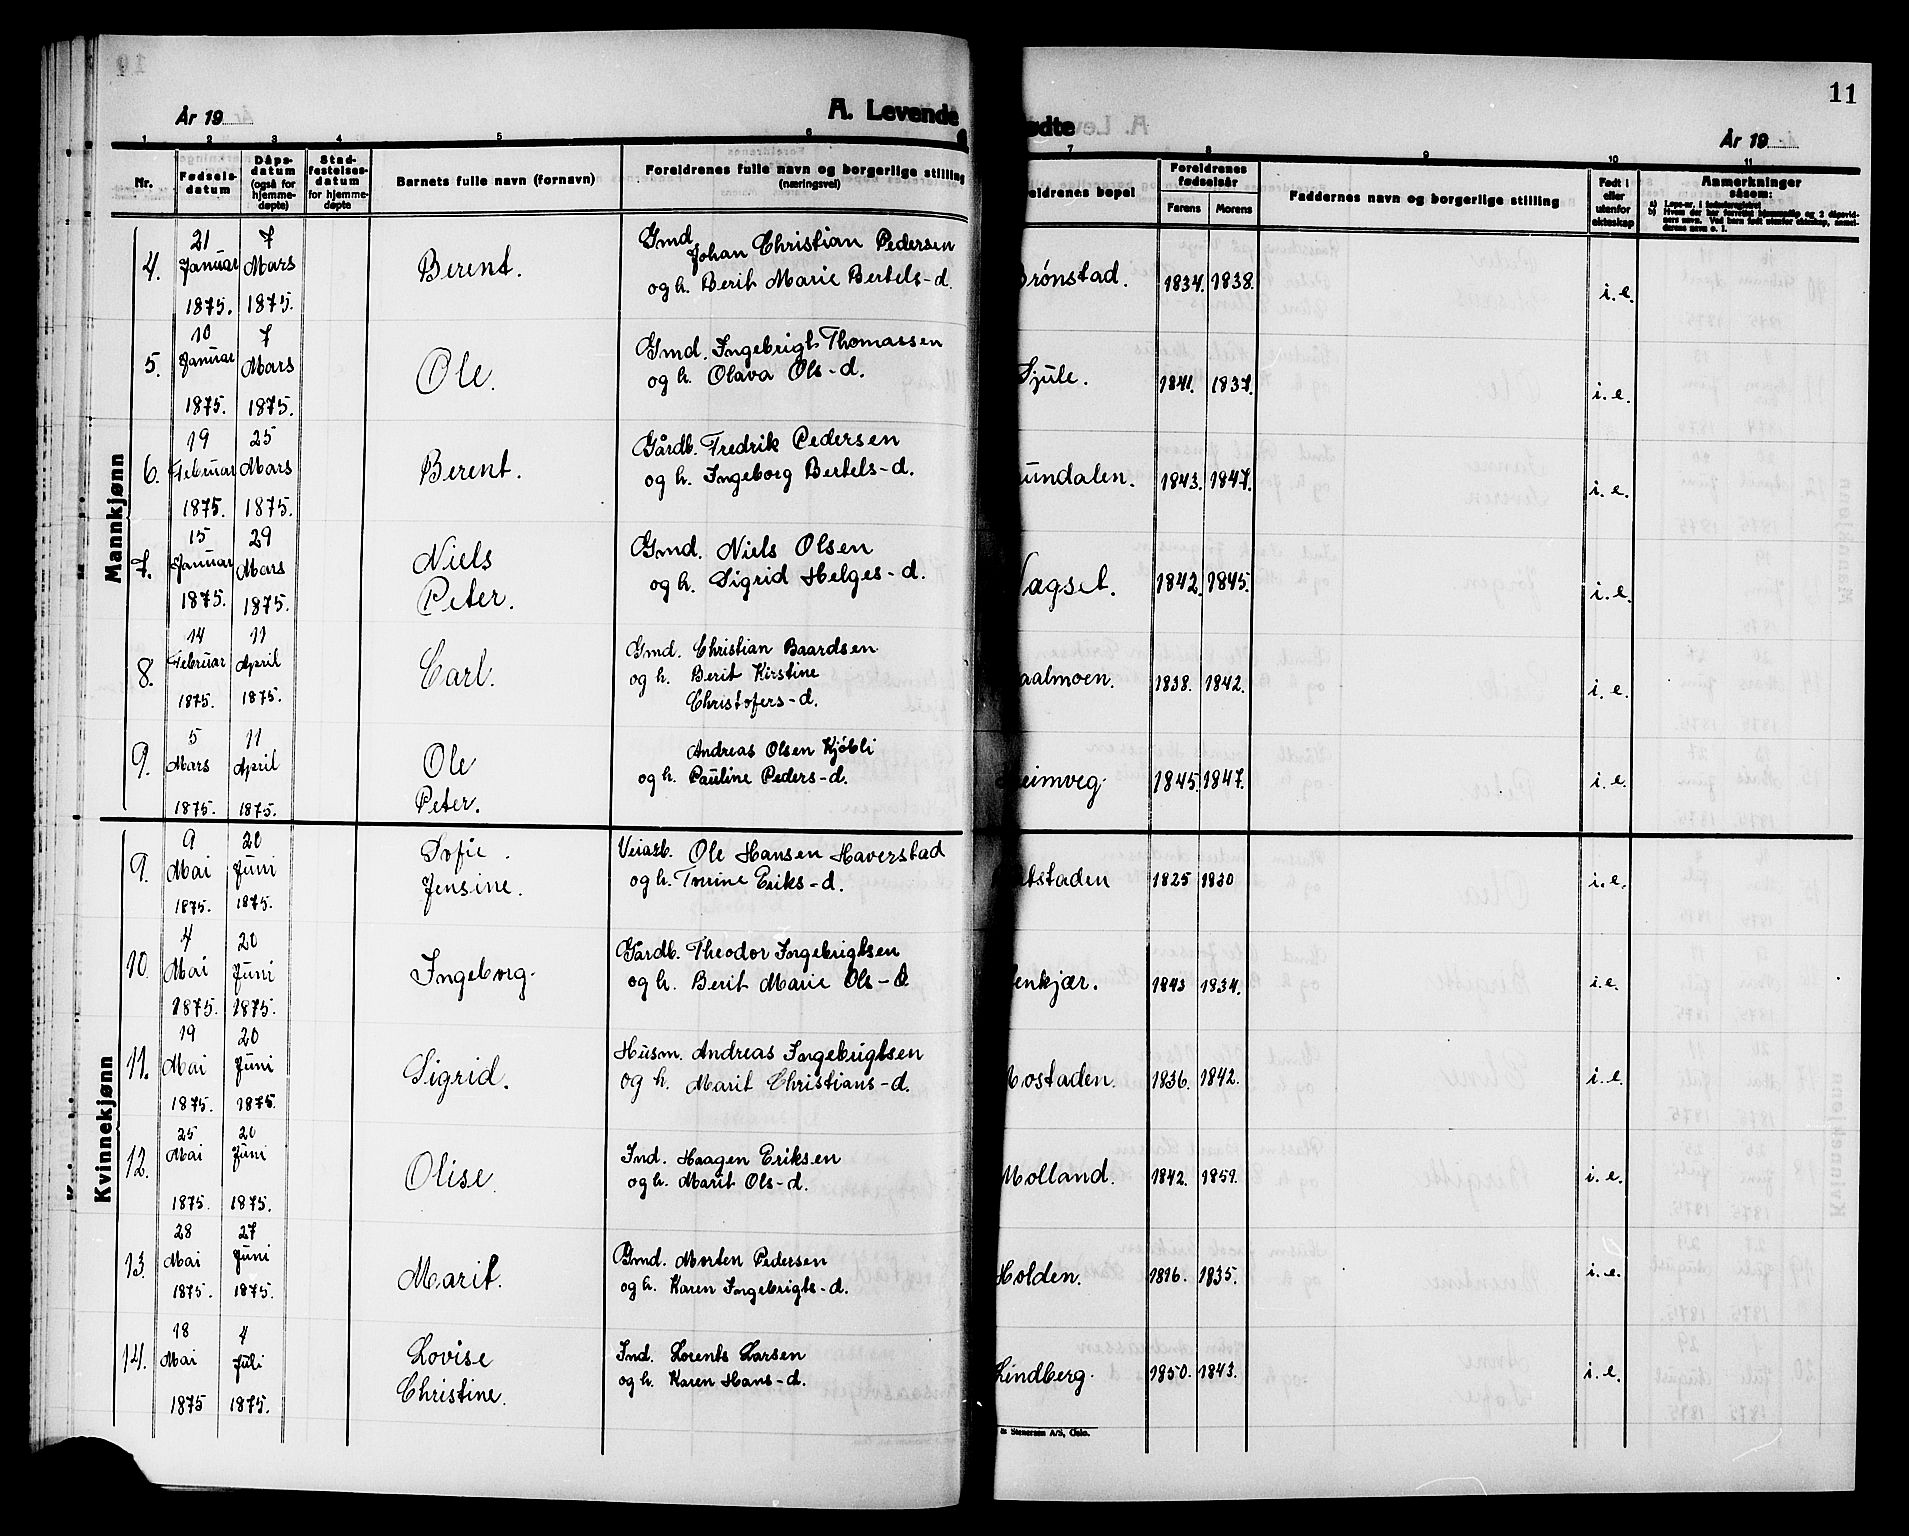 11
År 19
A. Levende
ødte
År 19
1 2 3 4 5 6 7 8 9 10 11
Nr.
Fødselsdatum
Dåpsdatum (også for hjemmedøpte)
Stadfestelsesdatum for hjemmedøpte
Barnets fulle navn (fornavn)
Foreldrenes fulle navn og borgerlige stilling
(næringsvei)
reldrenes bopel
Foreldrenes fødselsår
Farens Morens
Faddernes navn og borgerlige stilling
Født i eller utenfor ekteskap
Anmerkninger såsom:
Mannkjønn
4. 21 Januar 1875. 7 Mars 1875. Berent. Gmd. Johan Christian Pedersen
og h. Berit Marie Bertels-d. rønstad. 1834. 1838. i.e.
5. 10 Januar 1875. 7 Mars 1875. Ole. Gmd. Ingebrigt Thomassen
og h. Olava Ols-d. Sjule. 1841. 1837. i.e.
6. 19 Februar 1875. 25 Mars 1875. Berent. Gårdb. Fredrik Pedersen
og h. Ingeborg Bertels-d. undalen. 1843. 1847. i.e.
7. 15 Januar 1875. 29 Mars 1875. Niels Peter. Gmd. Niels Olsen
og h. Sigrid Helges-d. agset. 1842. 1845. i.e.
8. 14 Februar 1875. 11 April 1875. Carl. Gmd. Christian Baardsen
og h. Berit Kirstine
Christofers-d. aalmoen. 1838. 1842. i.e.
9. 5 Mars 1875. 11 April 1875. Ole Peter. Andreas Olsen Kjöbli
og h. Pauline Peders-d. eimveg 1845. 1847. i.e.
Kvinnekjønn
9. 9 Mai 1875. 20 Juni 1875. Sofie Jensine. Veiarb. Ole Hansen Haverstad
og h. Eriks-d. tstaden 1825 1830 i.e.
10. 4 Mai 1875. 20 Juni 1875. Ingeborg. Gårdb. Theodor Ingebrigtsen
og h. Berit Marie Ols-d enkjær. 1843 1834. i.e.
11. 19 Mai 1875. 20 Juni 1875. Sigrid. Husm. Andreas Ingebrigtsen
og h. Marit Christians-d. Mostaden. 1836. 1842. i.e.
12. 25 Mai 1875. 20 Juni 1875. Olise. Ind. Haagen Eriksen
og h. Marit Ols-d. Molland. 1842. 1859. i.e.
13. 28 Mai 1875. 27 Juni 1875. Marit. Gmd. Morten Pedersen
og h. Karen Ingebrigts-d. Holden. 1816. 1835. i.e.
14. 18 Mai 1875 4 Juli 1875. Lovise Christine. Ind. Lorents Larsen
og h. Karen Hans-d. Lindberg. 1850. 1843. i.e.
& Stenersen A/S, Oslo.